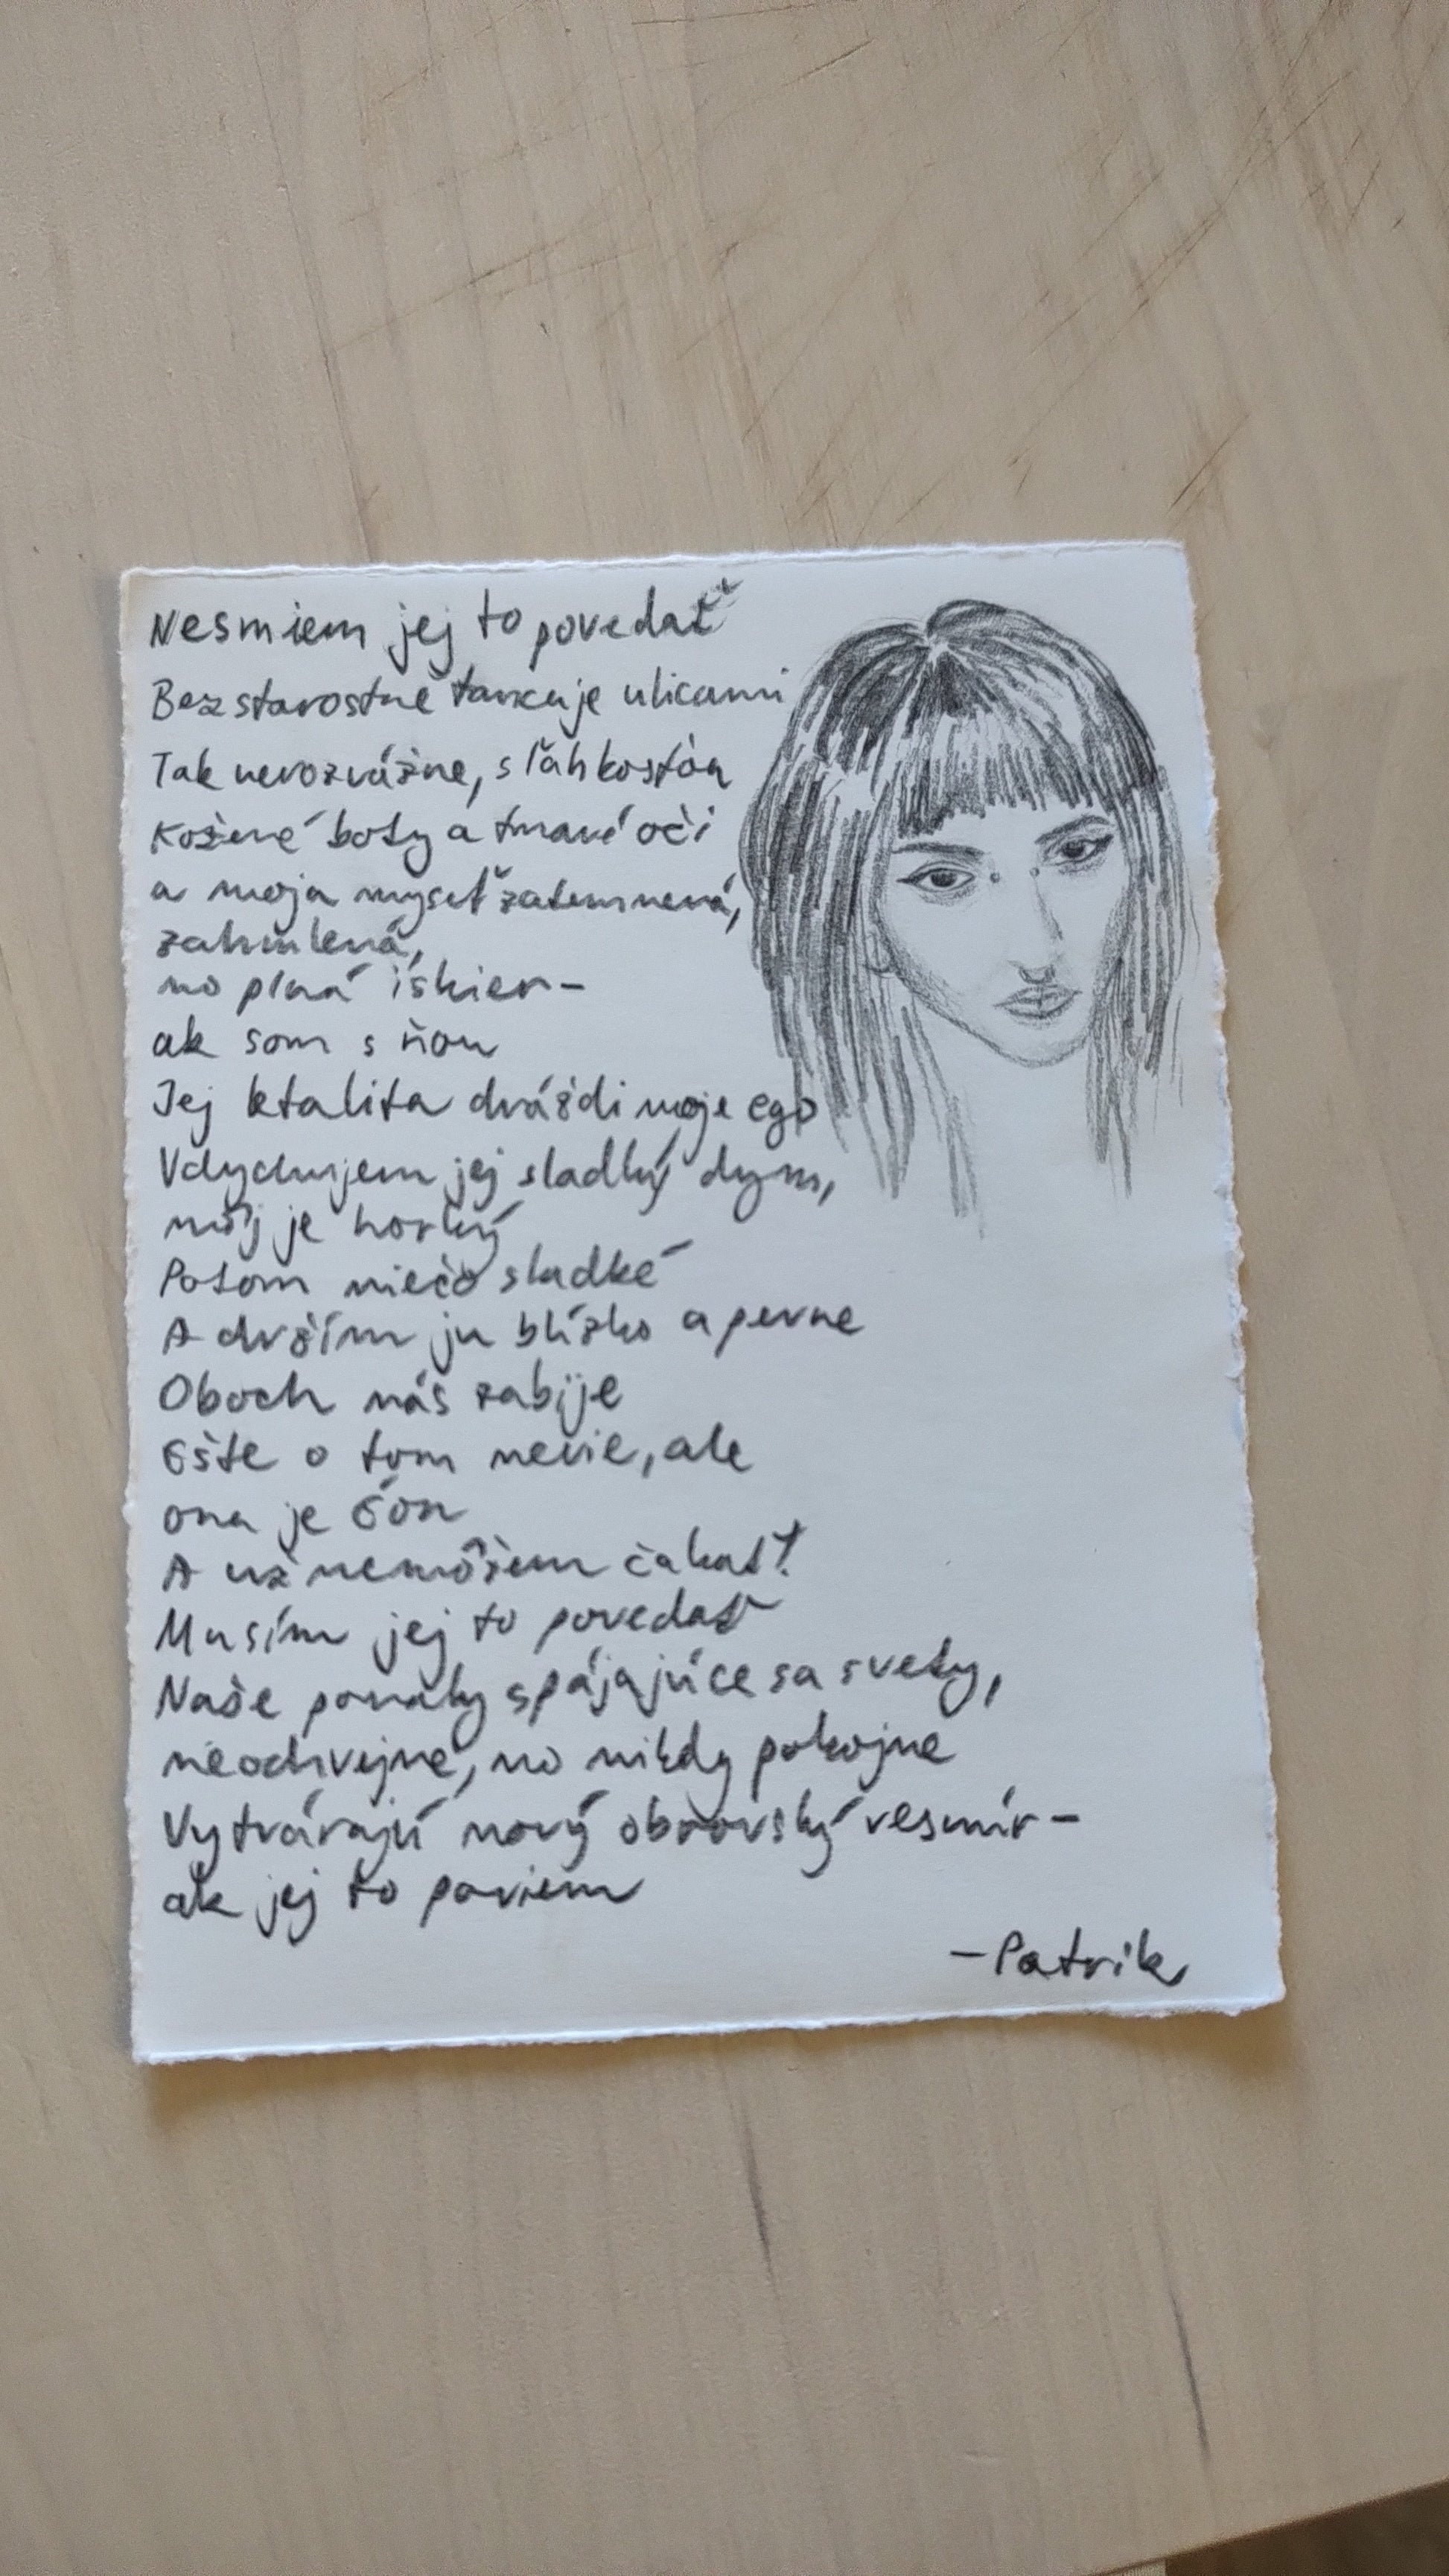 Nesmiem jej to povedať
Bezstarostne tancuje ulicami
Tak nerozvážne, s ľahkosťou
Kožené boty a tmavé oči
a moja myseľ zatemnená,
zahmlená,
no plná iskier-
ak som s ňou
Jej kvalita dráždi moje ego
Vdychujem jej sladký dym,
môj je horký
Potom niečo sladké
A držím ju blízko a pevne
Oboch nás zabije
Ešte o tom nevie, ale
ona je Eón
A už nemôžem čakať!
Musím jej to povedať
Naše povahy spájajúce sa svety,
neochvejné, no nikdy pokojne
Vytvárajú nový obrovský vesmír-
ak jej to poviem
-Patrik